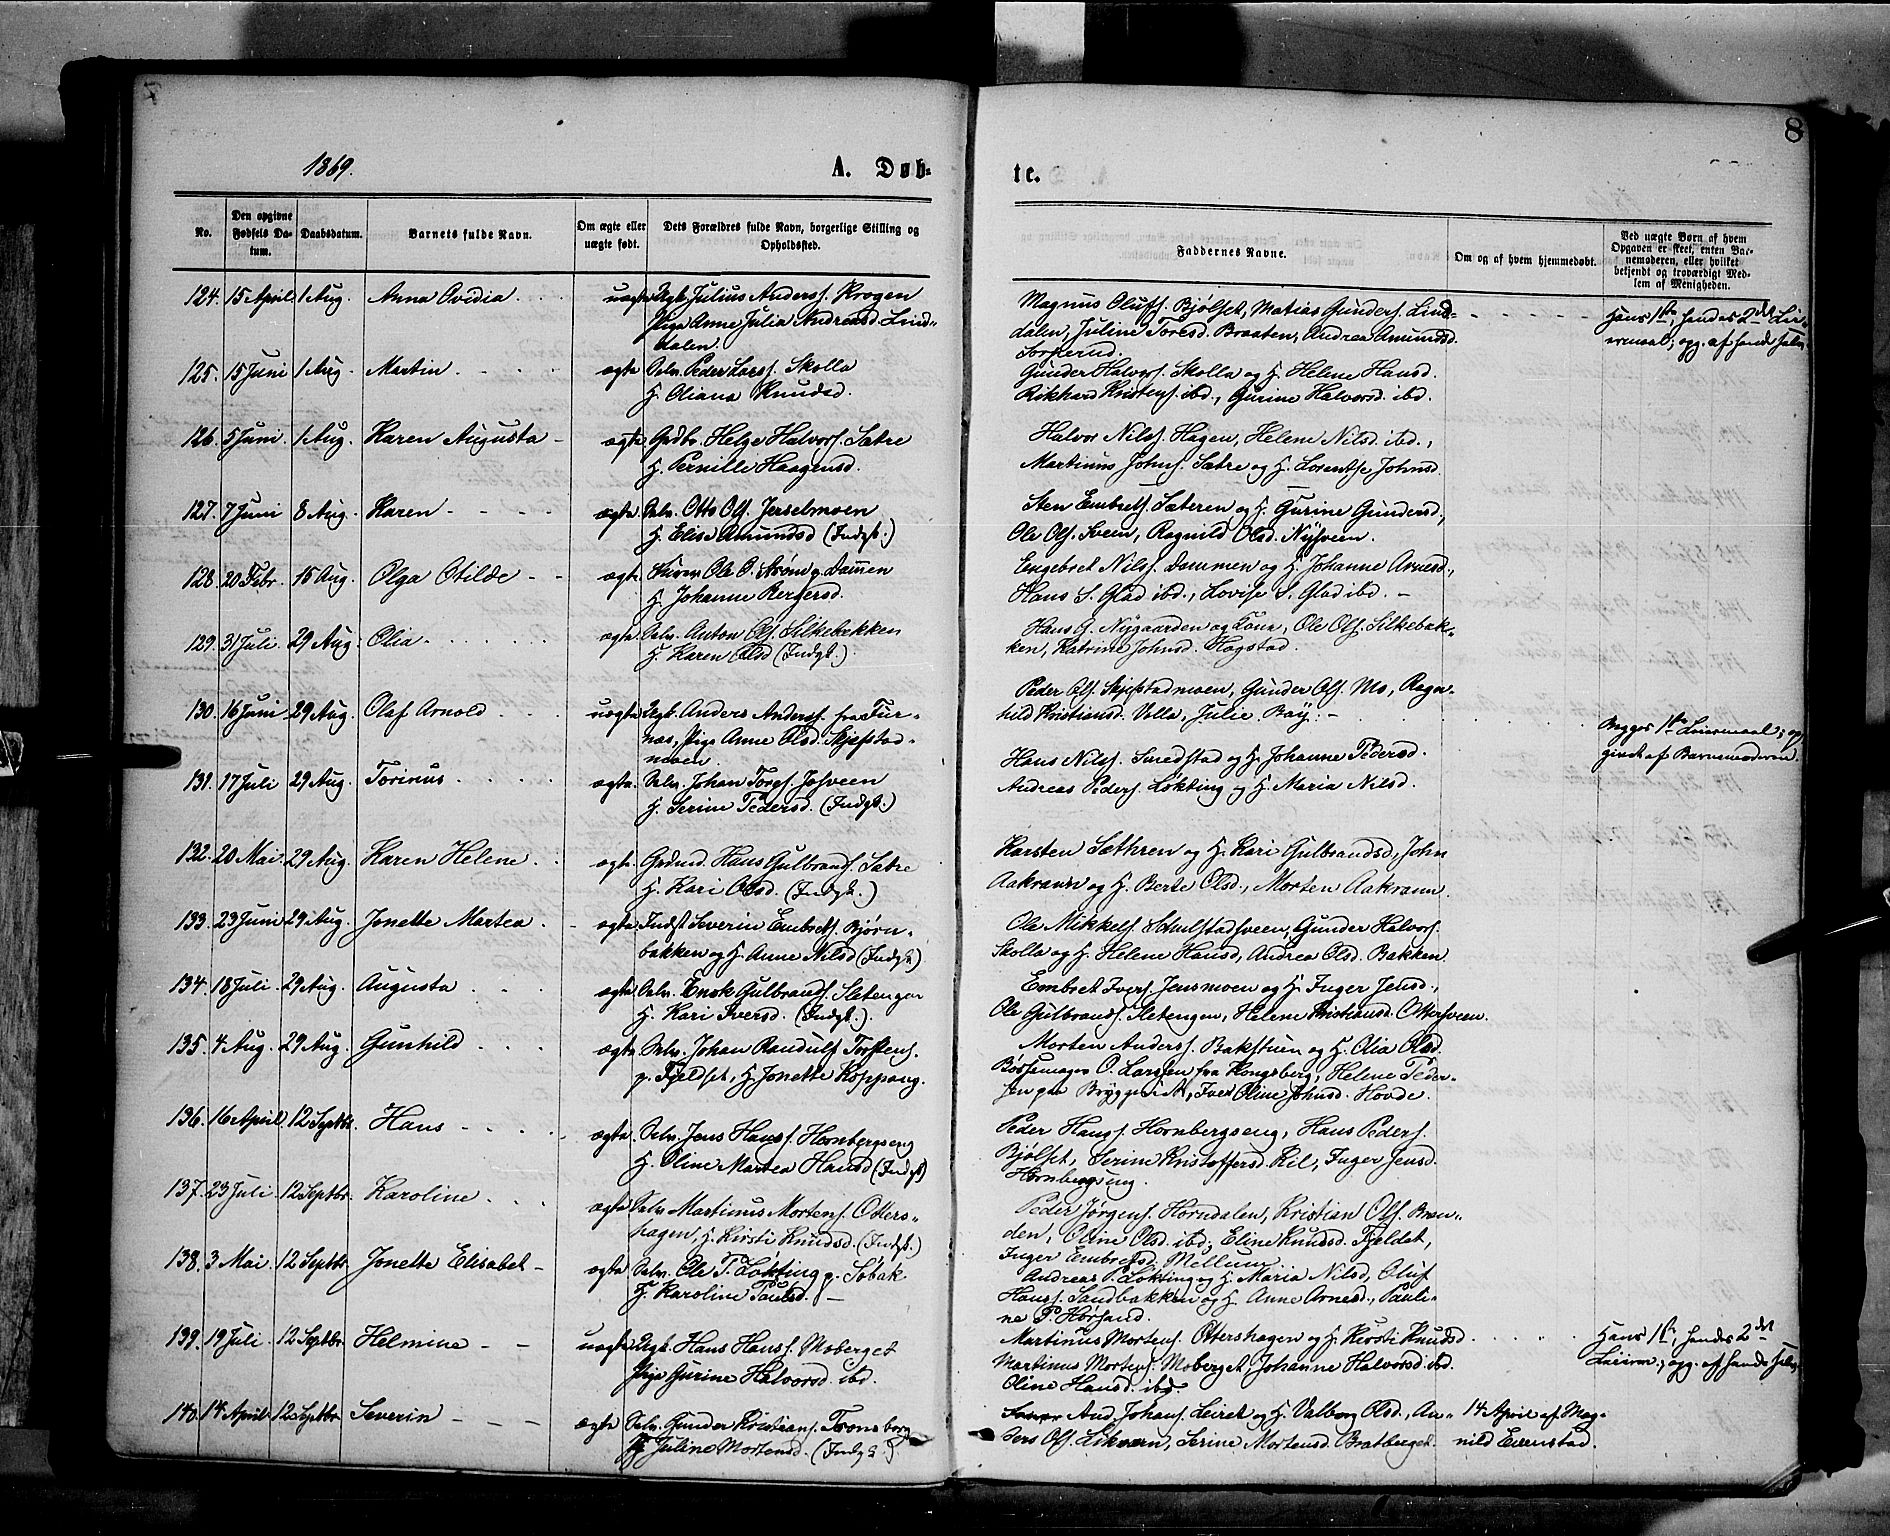 8
1869.
A. Døb-
te.
No.
Den opgivne Fødsels Da-tum.
Daabsdatum.
Barnets fulde Navn.
Om ægte eller uægte født.
Dets Forældres fulde Navn, borgerlige Stilling og Opholdssted.
Faddernes Navne.
Om og af hvem hjemmedøbt.
Ved uægte Børn af hvem Opgaven er skeet, enten Bar-nemoderen, eller hvilket bekjendt og troværdigt Med-lem af Menigheden.
124. 15 April 1 Aug. Anna Ovidia uægte Ugk. Julius Anderss. Krogen
Pige Anne Julia Andreasd. Lind-
dalen.
Magnus Olufs. Bjølset, Matias Gunders. Lind-
dalen, Juline Toresd. Braaten, Andrea Amundsd.
Sorperud.
Hans 1ste, hendes 2det Lei-
ermaal; opg. af hende selv.
125. 15 Juni 1 Aug. Martin ægte Selv. Peder Larss. Skolla
H. Oliana Knudsd.
Gunder Halvors. Skolla og H. Helene Hansd.
Rikhard Kristens. ibd., Gurine Halvorsd. ibd.
126. 5 Juni 1 Aug. Karen Augusta ægte Grdbr. Helge Halvors. Sætre
H. Pernille Haagensd.
Halvor Nilss. Hagen, Helene Nilsd. ibd.,
Martinus Johns. Sætre og H. Lorentse Johnsd.
127. 7 Juni 8 Aug. Karen ægte Selv. Otto Ols. Jerselmoen
H. Elise Amundsd (Indgt.)
Sten Embrets. Sæteren og H. Gurine Gundersd.,
Ole Ols. Sveen, Ragnild Olsd. Nysveen.
128. 20 Febr. 15 Aug. Olga Otilde ægte Ole O. Strøm p. Dammen
H. Johanne Bergersd.
Engebret Nilss. Dammen og H. Johanne Arnesd.,
Hans S. Glad ibd., Lovise S. Glad ibd.
129. 31 Juli 29 Aug. Olia ægte Selv. Anton Ols. Silkebekken
H. Karen Olsd (Indgt.)
Hans G. Nygaarden og Kone, Ole Ols. Silkebak-
ken, Katrine Johnsd. Hagstad.
130. 16 Juni 29 Aug. Olaf Arnold uægte Ugk. Anders Anderss. fra Fur-
næs, Pige Anne Olsd. Skjefstad-
moen.
Peder Ols. Skjefstadmoen, Gunder Ols. Mo, Ragn-
hild Kristiansd. Volla, Julie Bay.
Begges 1ste Leiermaal; op-
givet af Barnemoderen.
131. 17 Juli 29 Aug. Torinus ægte Selv. Johan Tores. Josveen
H. Serine Pedersd. (Indgt.)
Hans Nilss. Smedstad og H. Johanne Pedersd.
Andreas Peders. Løkting og H. Maria Nilsd.
132. 20 Mai 29 Aug. Karen Helene ægte Grdmd. Hans Gulbrands. Sætre
H. Kari Olsd. (Indgt.)
Karsten Sæthren og H. Kari Gulbrandsd, John
Aakrann og H. Berte Olsd., Morten Aakrann.
133. 23 Juni 29 Aug. Jonette Martea ægte Indst Severin Embrets. Bjørn-
bakken og H. Anne Nilsd (Indgt.)
Ole Mikkels Schulstadsveen, Gunder Halvors.
Skolla og H. Helene Hansd, Andrea Olsd. Bakken.
134. 18 Juli 29 Aug. Augusta ægte Selv. Enok Gulbrands. Sletengen
H. Kari Iversd. (Indgt.)
Embret Ivers. Jensmoen og H. Inger Jensd.,
Ole Gulbrands. Sletengen, Helene Kristiansd. Ottersveen.
135. 4 Aug. 29 Aug. Gunhild ægte Selv. Johan Randulf Torstens.
p. Fjeldset, H. Jonette Koppang.
Morten Anderss. Bakstuen og H. Olia Olsd.
Bøssemager O. Larssen fra Kongsberg, Helene Peder-
sen paa Bryggerict, Iver Oline Johnsd. Hovde.
136. 16 April 12 Septbr. Hans ægte Selv. Jens Hanss. Hornbergseng
H. Oline Martea Hansd (Indgt)
Peder Hanss. Hornbergseng, Hans Peders.
Bjølset, Serine Kristoffersd. Kil, Inger Jensd.
Hornbergseng.
137. 23 Juli 12 Septbr. Karoline ægte Selv Martinus Mortens. Otters-
hagen, H. Kirsti Knudsd. (Indgt.)
Peder Jørgens. Horndalen, Kristian Ols. Bræn-
den, Oline Olsd. ibd; Eline Knudsd. Fjeldet,
Inger Embretsd. Mellum.
138. 3 Mai 12 Septbr. Jonette Elisabet ægte Selv. Ole P. Løkting p. Søbak
H. Karoline Paulsd.
Andreas P. Løkting og H. Maria Nilsd, Oluf
Hanss. Sandbakken og H. Anne Arnesd., Pauli-
ne P. Hørsand.
139. 19 Juli 12 Septbr. Helmine uægte Ugk. Hans Hanss. Moberget
Pige Gurine Halvorsd. ibd.
Martinus Mortens. Ottershagen og H. Kirsti Knudsd
Martinus Mortens. Moberget, Johanne Halvorsd. ibd.
Oline Hansd. ibd.
Hans 1ste, hendes 2det
Leierm.; opg. af hende selv.
140. 14 April 12 Septbr. Severin ægte Selv. Gunder Kristians. Tronsberg
H. Juline Mortensd. (Indgt.)
And. Johans. Leiret og H. Valborg Olsd., An-
ders Ols. Likværn, Serine Mortensd. Bratberget.
14 April af Mag-
nild Evenstad.